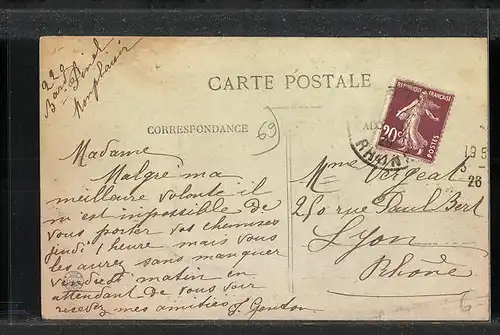 229
Bard Pinel
Monplaisir
CARTE POSTALE
CORRESPONDANCE
69
RÉPUBLIQUE FRANÇAISE
20c
POSTES
RHONE
26
Madame
Malgré ma
meilleure volonté il
m'est impossible de
vous porter vos chemises
jeudi 1 heure mais vous
les aurez sans manquer
vendredi matin en
attendant de vous voir
recevez mes amitiés J. Genton
Mme Vergeat
250 rue Paul Bert
Lyon
Rhône
6